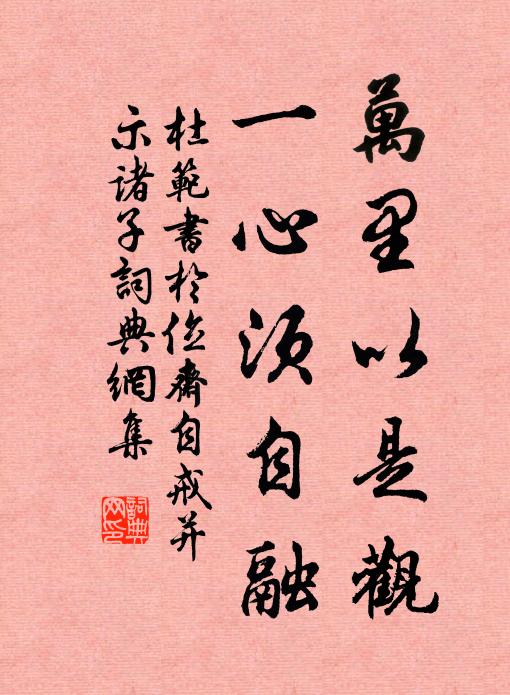 萬里以是觀
一心須自融
杜範書於位齋自戒并
示諸子詞典網集
詞典網印